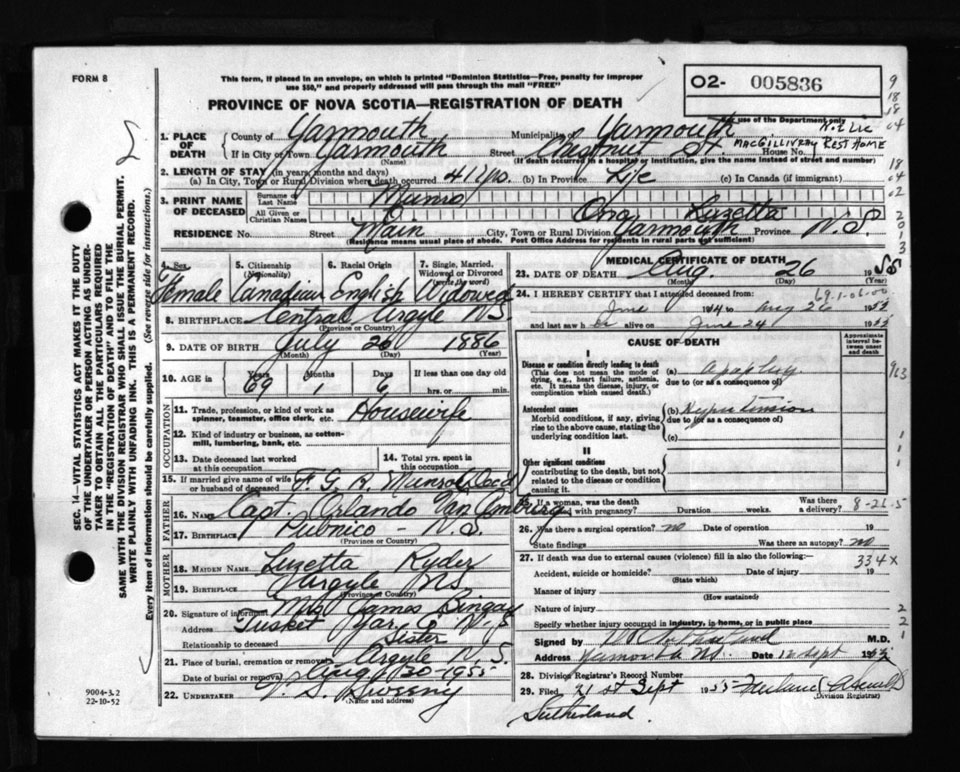 FORM 8
This form, if placed in an envelope, on which is printed "Dominion Statistics—Free, penalty for improper
use $50," and properly addressed will pass through the mail "FREE"
O2- 005836
PROVINCE OF NOVA SCOTIA—REGISTRATION OF DEATH
use of the Department only
1. PLACE OF DEATH
County of Yarmouth Municipality of Yarmouth
If in City or Town Yarmouth Street Chestnut St. House No.
MacGillivray Rest Home
(Name) (If death occurred in a hospital or institution, give the name instead of street and number)
2. LENGTH OF STAY (in years, months and days)
(a) In City, Town or Rural Division where death occurred 41 yrs. (b) In Province Life (c) In Canada (if immigrant)
3. PRINT NAME OF DECEASED
Surname or Last Name Munro
All Given or Christian Names Ora Luzetta
RESIDENCE No. Street Main City, Town or Rural Division Yarmouth Province N.S.
(Residence means usual place of abode. Post Office Address for residents in rural parts not sufficient)
4. Sex 5. Citizenship (Nationality) 6. Racial Origin 7. Single, Married, Widowed or Divorced (write the word)
Female Canadian English Widowed
8. BIRTHPLACE Central Argyle N.S.
(Province or Country)
9. DATE OF BIRTH July 26 1886
(Month) (Day) (Year)
10. AGE in Years Months Days If less than one day old
69 1 6 hrs. or min.
OCCUPATION
11. Trade, profession, or kind of work as spinner, teamster, office clerk, etc. Housewife
12. Kind of industry or business, as cotton-mill, lumbering, bank, etc.
13. Date deceased last worked at this occupation
14. Total yrs. spent in this occupation
15. If married give name of wife or husband of deceased F. G. R. Munro (Decd)
FATHER
16. NAME Capt. Orlando Van Amburg
17. BIRTHPLACE Pubnico - N.S.
(Province or Country)
MOTHER
18. MAIDEN NAME Luzetta Ryder
19. BIRTHPLACE Argyle N.S.
(Province or Country)
20. Signature of informant Mrs James Bingay
Address Tusket Yar. Co N.S
Relationship to deceased Sister
21. Place of burial, cremation or removal Argyle N.S.
Date of burial or removal Aug 30-1955
22. UNDERTAKER V. S. Sweeny
(Name and address)
MEDICAL CERTIFICATE OF DEATH
23. DATE OF DEATH Aug. 26 1955
(Month) (Day)
24. I HEREBY CERTIFY that I attended deceased from
June 1954 to Aug 26 1955
and last saw her alive on June 24 1955
CAUSE OF DEATH
Approximate interval between onset and death
I
Disease or condition directly leading to death
(This does not mean the mode of dying, e.g., heart failure, asthenia, etc. It means the disease, injury, or complication which caused death.)
(a) Apoplexy
due to (or as a consequence of)
Antecedent causes
Morbid conditions, if any, giving rise to the above cause, stating the underlying condition last.
(b) Hypertension
due to (or as a consequence of)
(c)
II
Other significant conditions
contributing to the death, but not related to the disease or condition causing it.
25. If a woman, was the death associated with pregnancy? Duration weeks. Was there a delivery?
26. Was there a surgical operation? no Date of operation 19
State findings Was there an autopsy? no
27. If death was due to external causes (violence) fill in also the following:—
334X
Accident, suicide or homicide? Date of injury 19
(State which)
Manner of injury
(How sustained)
Nature of injury
Specify whether injury occurred in industry, in home, or in public place
Signed by M.D.
Address Yarmouth N.S. Date 12 Sept 1955
28. Division Registrar's Record Number
29. Filed 21st Sept 1955
(Division Registrar)
Sutherland.
SEC. 14—VITAL STATISTICS ACT MAKES IT THE DUTY
OF THE UNDERTAKER OR PERSON ACTING AS UNDER-
TAKER TO OBTAIN ALL THE PARTICULARS REQUIRED
IN THE "REGISTRATION OF DEATH" AND TO FILE THE
SAME WITH THE DIVISION REGISTRAR WHO SHALL ISSUE THE BURIAL PERMIT.
WRITE PLAINLY WITH UNFADING INK. THIS IS A PERMANENT RECORD.
Every item of information should be carefully supplied. (See reverse side for instructions.)
9004-3.2
22-10-52